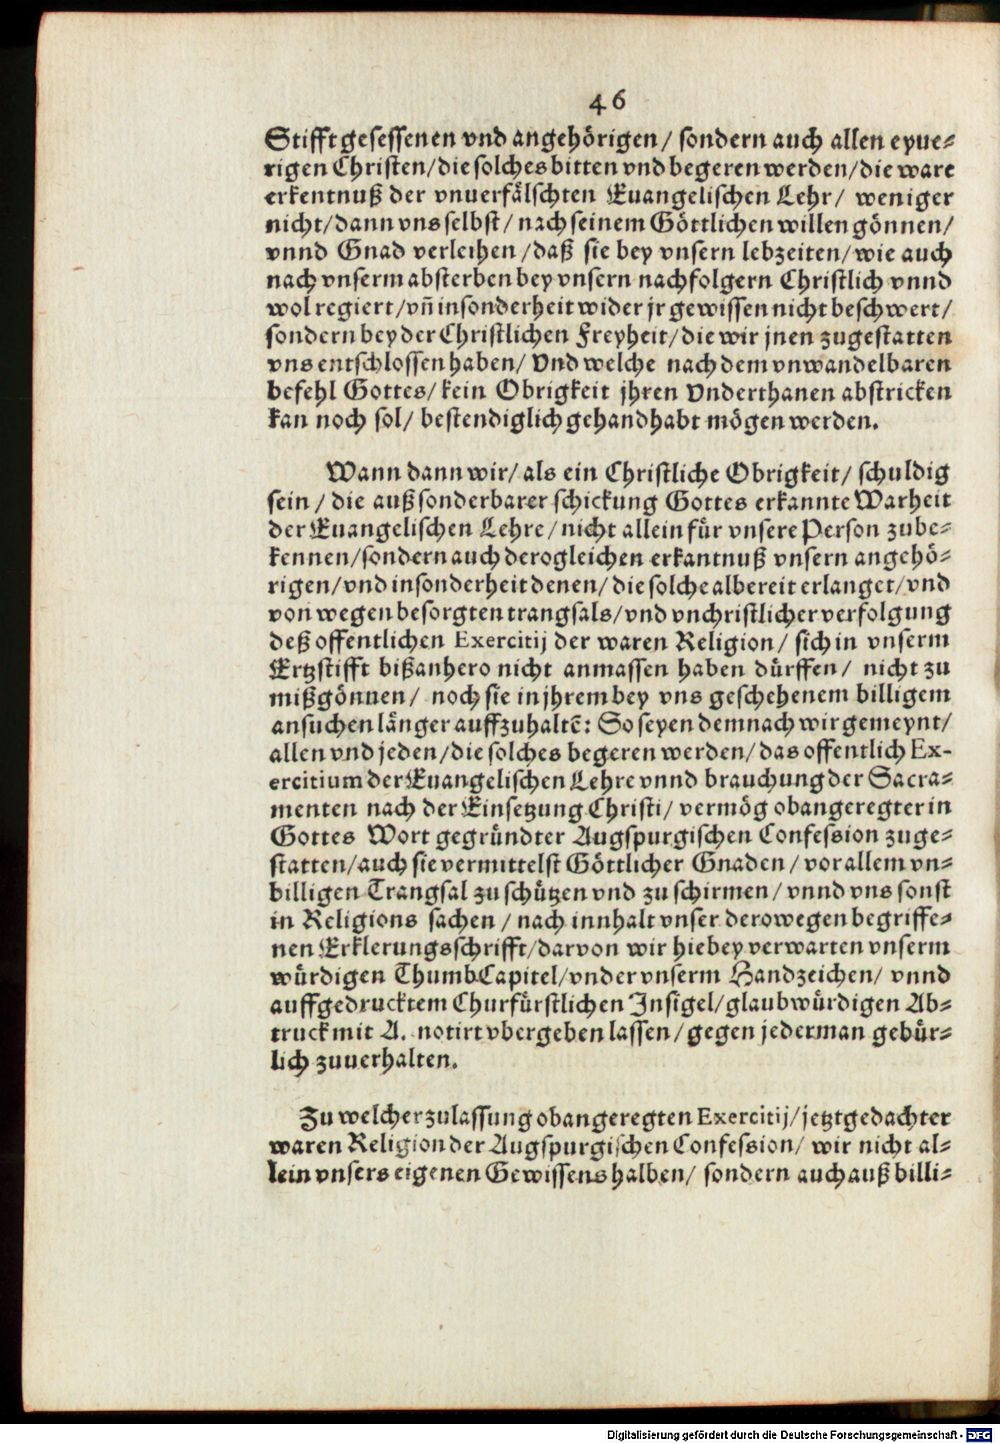 46
Stifftgesessenen vnd angehörigen / sondern auch allen eyue-
rigen Christen/die solches bitten vnd begeren werden/die ware
erkentnuß der vnuerfälschten Euangelischen Lehr/ weniger
nicht/dann vns selbst/ nach seinem Göttlichen willen gönnen/
vnnd Gnad verleihen/daß sie bey vnsern lebzeiten/wie auch
nach vnserm absterben bey vnsern nachfolgern Christlich vnnd
wol regiert/vñ insonderheit wider jr gewissen nicht beschwert/
sondern bey der Christlichen Freyheit/die wir jnen zugestatten
vns entschlossen haben/ Vnd welche nach dem vnwandelbaren
befehl Gottes/ kein Obrigkeit jhren Vnderthanen abstricken
kan noch sol/ bestendiglich gehandhabt mögen werden.
Wann dann wir/ als ein Christliche Obrigkeit/ schuldig
sein / die auß sonderbarer schickung Gottes erkannte Warheit
der Euangelischen Lehre/ nicht allein für vnsere Person zube-
kennen/sondern auch derogleichen erkantnuß vnsern angehö-
rigen/vnd insonderheit denen/die solche albereit erlanget/vnd
von wegen besorgten trangsals/vnd vnchristlicher verfolgung
deß offentlichen Exercitij der waren Religion/ sich in vnserm
Ertzstifft bißanhero nicht anmassen haben dürffen/ nicht zu
mißgönnen/ noch sie in jhrem bey vns geschehenem billigem
ansuchen länger auffzuhaltē: So seyen demnach wir gemeynt/
allen vnd jeden/die solches begeren werden/das offentlich Ex-
ercitium der Euangelischen Lehre vnnd brauchung der Sacra-
menten nach der Einsetzung Christi/ vermög obangeregter in
Gottes Wort gegründter Augspurgischen Confession zuge-
statten/auch sie vermittelst Göttlicher Gnaden/vor allem vn-
billigen Trangsal zu schützen vnd zu schirmen/vnnd vns sonst
in Religions sachen / nach innhalt vnser derowegen begriffe-
nen Erklerungsschrifft/darvon wir hiebey verwarten vnserm
würdigen ThumbCapitel/vnder vnserm Handzeichen/ vnnd
auffgedrucktem Churfürstlichen Insigel/glaubwürdigen Ab-
truck mit A. notirt vbergeben lassen/gegen jederman gebür-
lich zuuerhalten.
Zu welcher zulassung obangeregten Exercitij/jetztgedachter
waren Religion der Augspurgischen Confession/ wir nicht al-
lein vnsers eigenen Gewissens halben/ sondern auch auß billi-
Digitalisierung gefördert durch die Deutsche Forschungsgemeinschaft - DFG